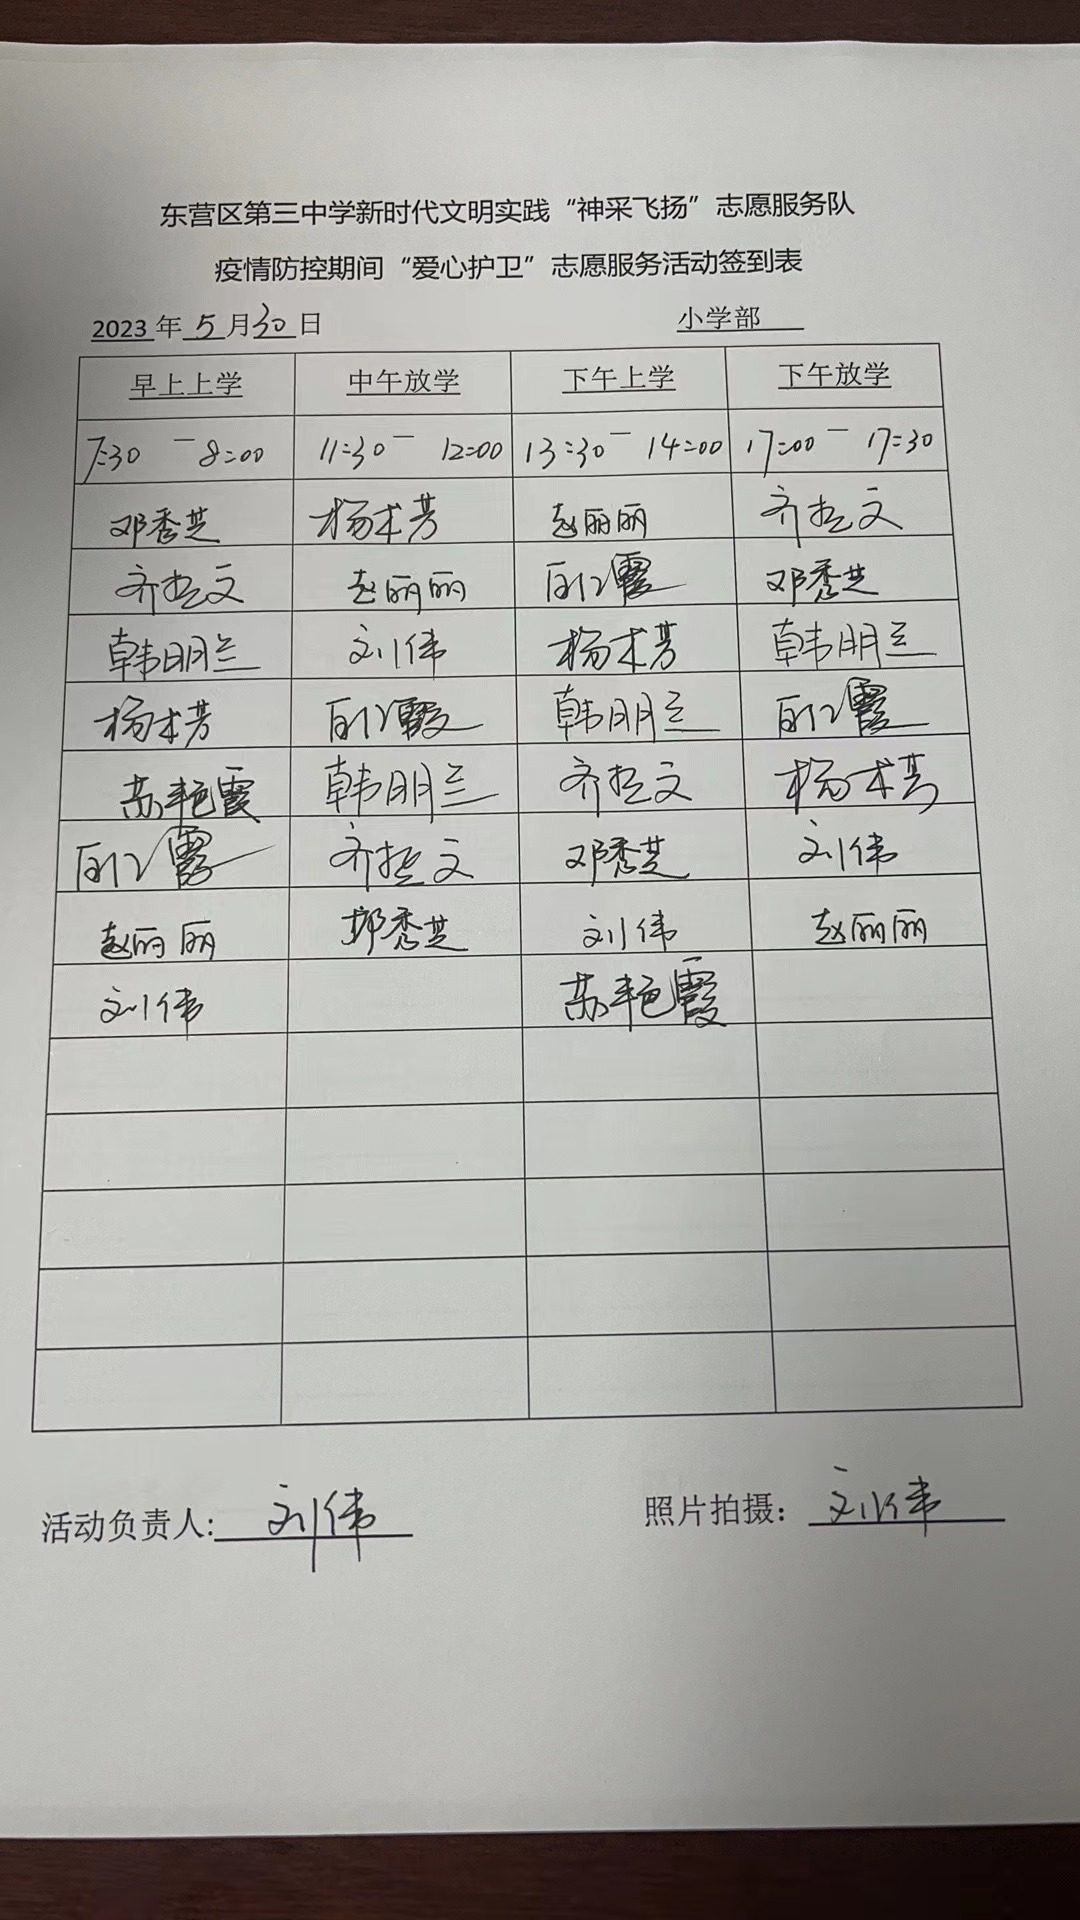 东营区第三中学新时代文明实践“神采飞扬”志愿服务队
疫情防控期间“爱心护卫”志愿服务活动签到表
2023年5月30日 小学部
早上上学 中午放学 下午上学 下午放学
7:30－8:00 11:30－12:00 13:30－14:00 17:00－17:30
邓秀芝 杨术芳 赵丽丽 齐哲文
齐哲文 赵丽丽 霞 邓秀芝
韩明兰 刘伟 杨术芳 韩明兰
杨术芳 霞 韩明兰 霞
苏艳霞 韩明兰 齐哲文 杨术芳
霞 齐哲文 邓秀芝 刘伟
赵丽丽 邓秀芝 刘伟 赵丽丽
刘伟 苏艳霞
活动负责人:刘伟 照片拍摄：刘伟